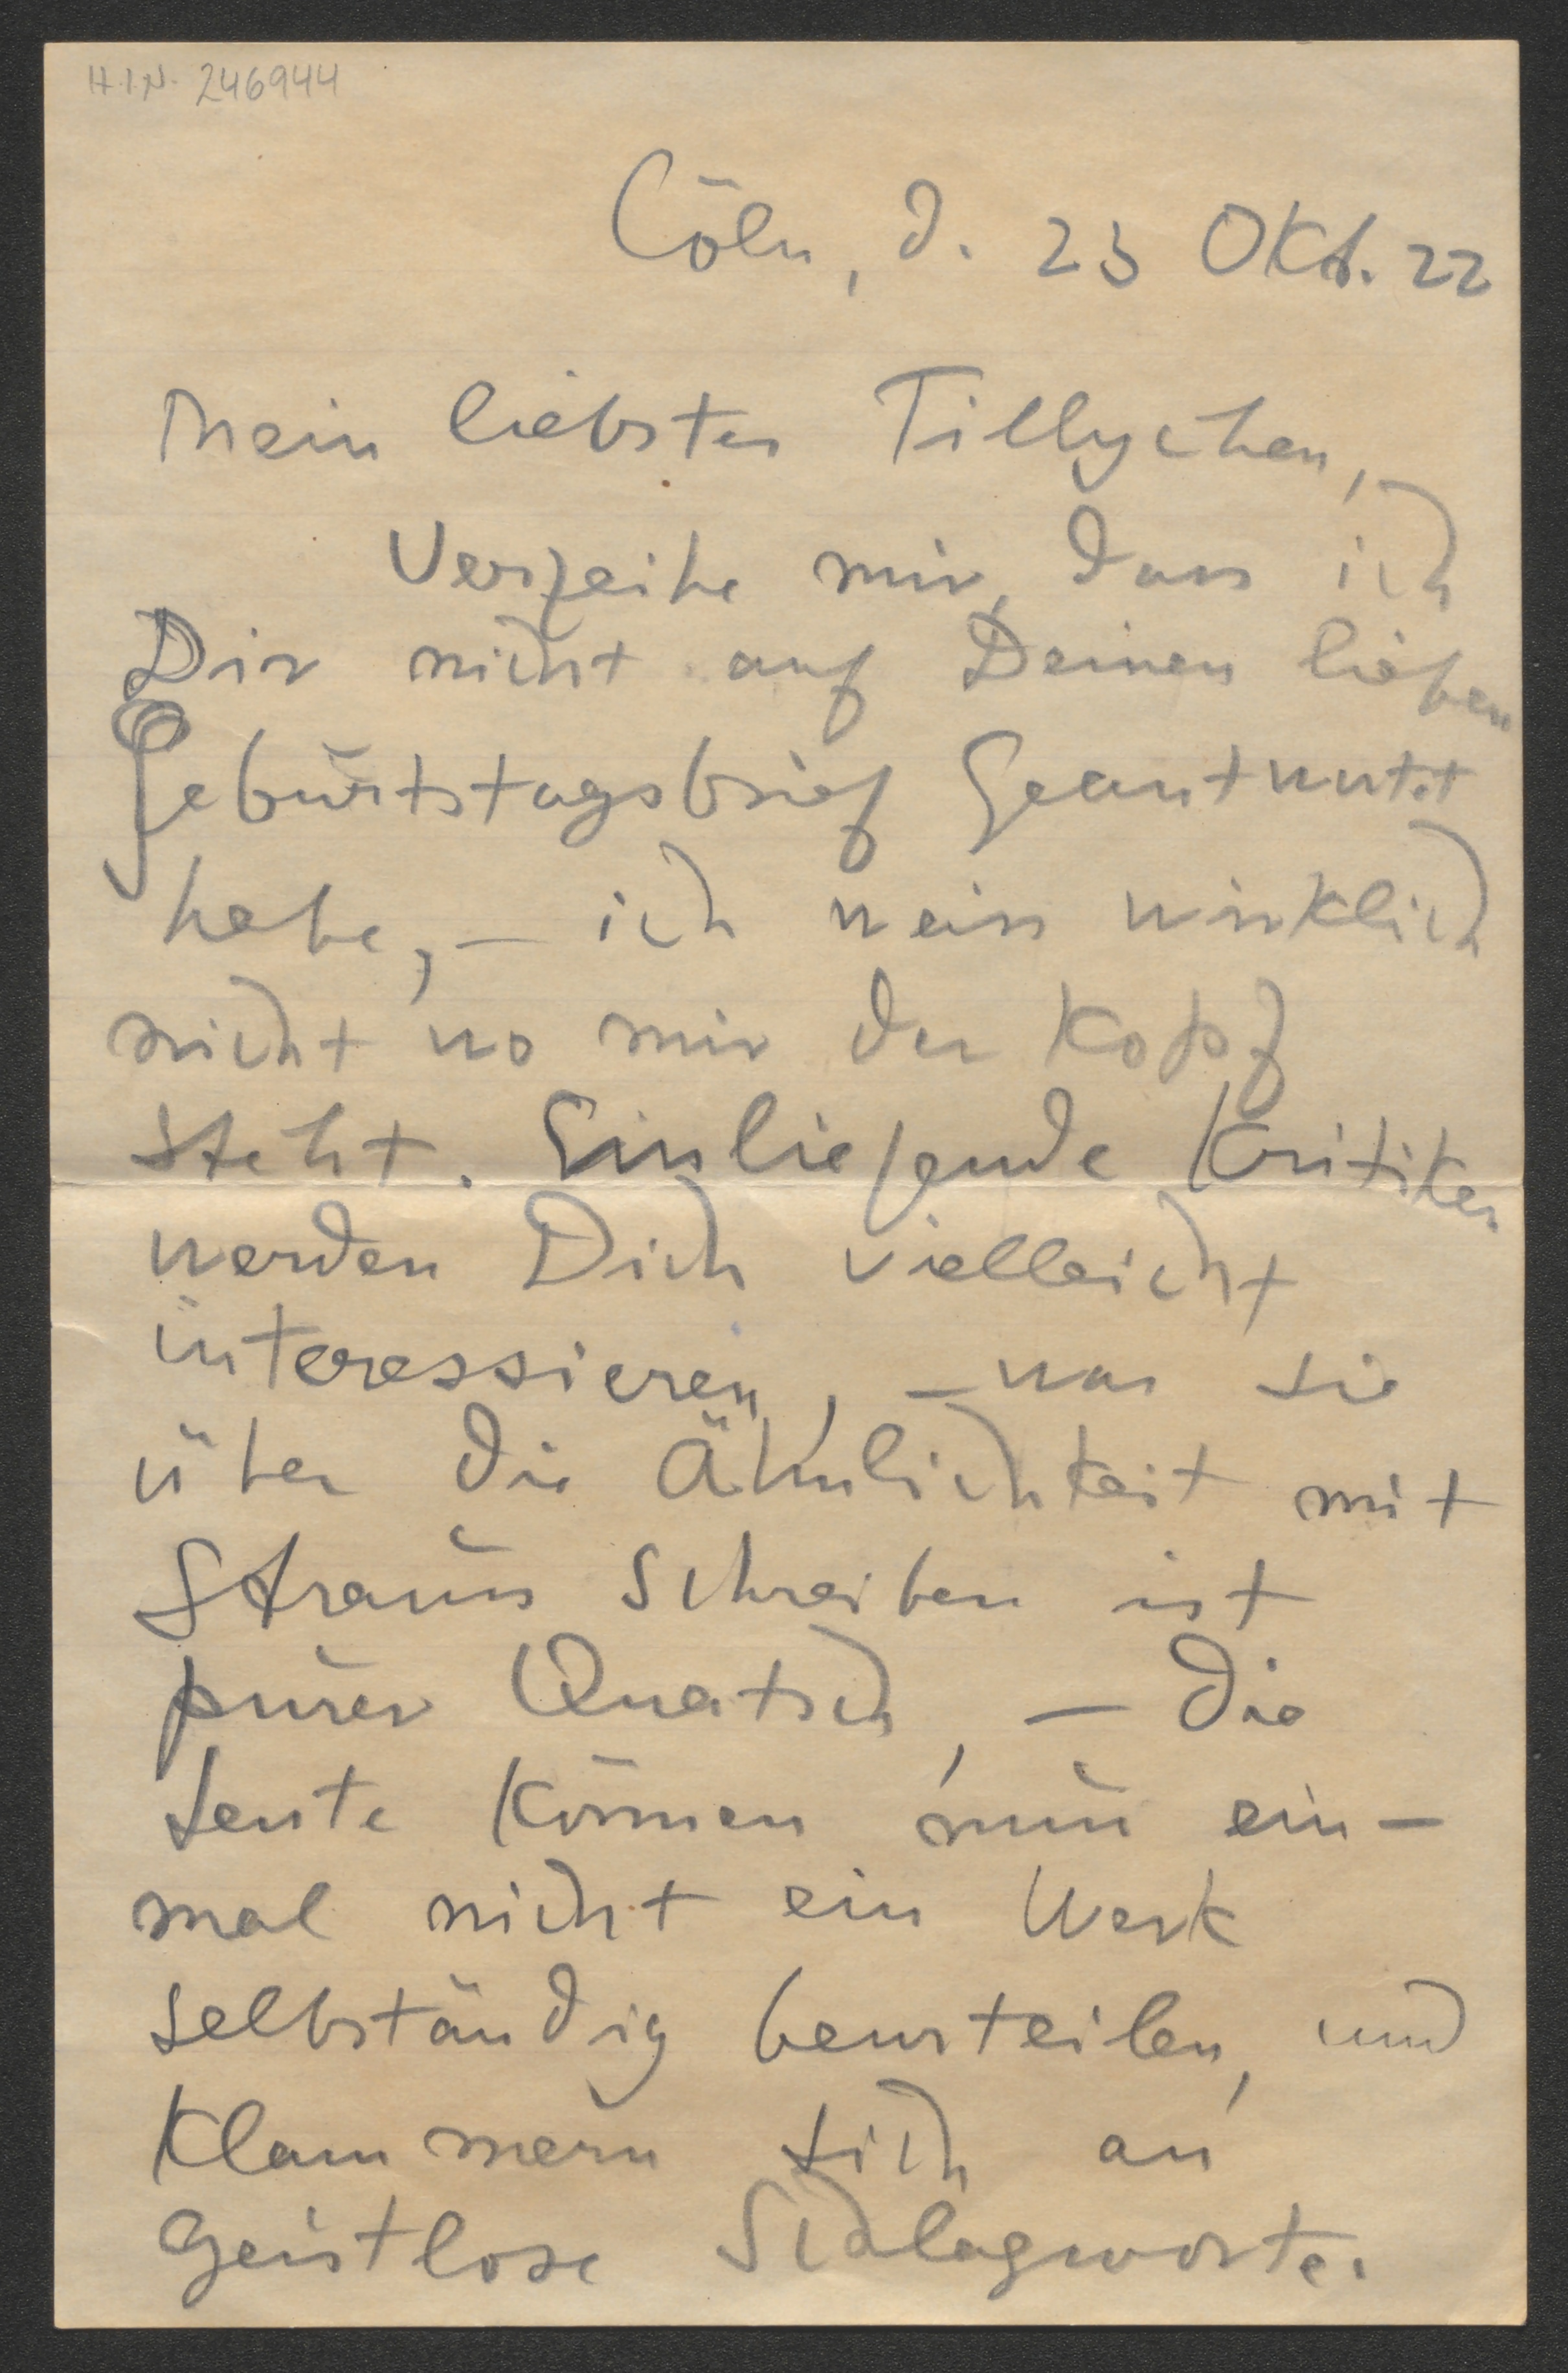 H.I.N. 246944
Cöln, d. 23 Okt. 22
Mein liebstes Tillychen,
Verzeihe mir, dass ich
Dir nicht auf Deinen lieben
Geburtstagsbrief geantwortet
habe, – ich weiss wirklich
nicht wo mir der Kopf
steht. Einliegende Kritiken
werden Dich vielleicht
interessieren, – was sie
über die Ähnlichkeit mit
Strauss schreiben ist
purer Quatsch, – die
Leute können nun ein-
mal nicht ein Werk
selbständig beurteilen, und
klammern sich an
geistlose Schlagworte.